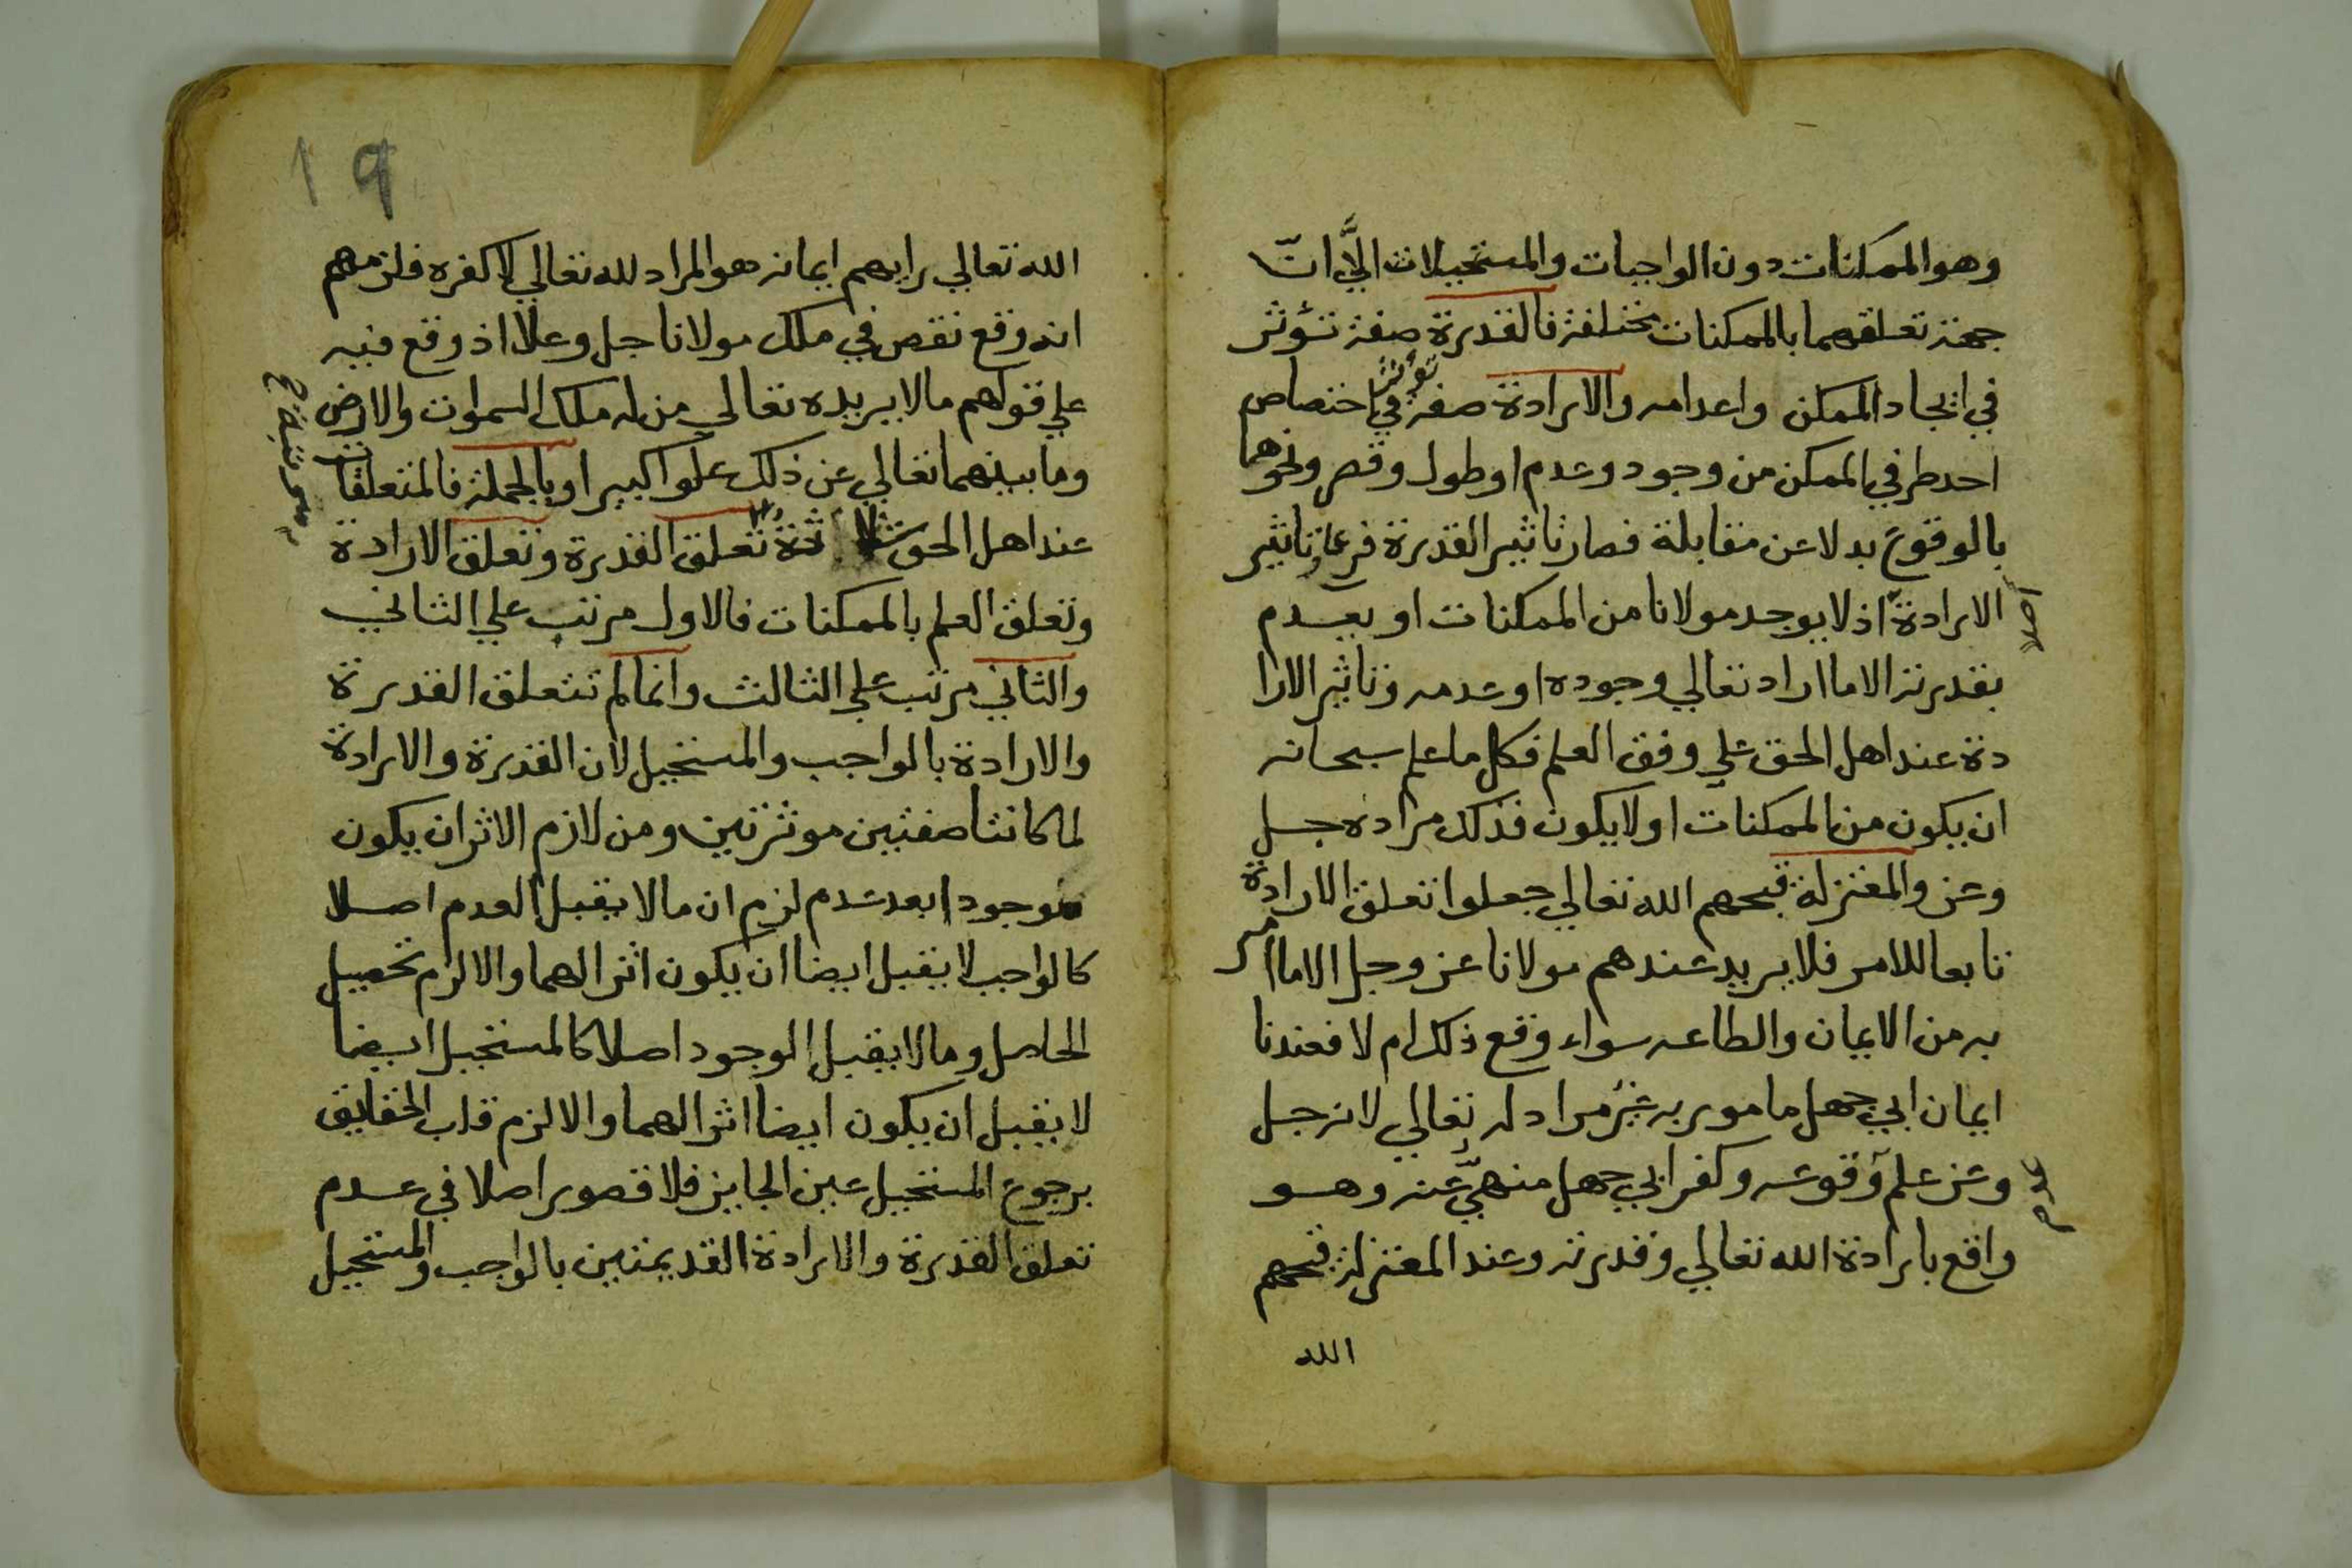 وهو الممكنات دون الواجبات والمستحيلات الا ان
جهة تعلقهما بالممكنات مختلفة فالقدرة صفة تؤثر
في ايجاد الممكن واعدامه والارادة صفة تؤثر في اختصاص
احد طرفي الممكن من وجود وعدم او طول وقصر ونحوهما
بالوقوع بدلا عن مقابلة فصار تاثير القدرة فرعا تاثير
الارادة اذ لا يوجد مولانا من الممكنات او يعدم
اصلا
بقدرته الا ما اراد تعالي وجوده او عدمه وتاثير الارا
دة عند اهل الحق علي وفق العلم فكل ما علم سبحانه
ان يكون من الممكنات او لا يكون فذلك مراده جل
وعز والمعتزلة قبحهم الله تعالي جعلوا تعلق الارادة
تابعا للامر فلا يريد عندهم مولانا عز وجل الا ما امر
به من الايمان والطاعه سواء وقع ذلك ام لا فعندنا
ايمان ابي جهل مامور به غير مراد له تعالي لانه جل
وعز علم وقوعه وكفر ابي جهل منهيّ عنه وهو
عدم
واقع بارادة الله تعالي وقدرته وعند المعتزلة قبحهم
الله
19
الله تعالي رايهم ايمانه هو المراد لله تعالي لا كفره فلزمهم
انه وقع نقص في ملك مولانا جل وعلا اذ وقع فيه
علي قولهم ما لا يريده تعالي من له ملك السموات والارض
وما بينهما تعالي عن ذلك علوا كبيرا وبالجملة فالمتعلقات
عند اهل الحق ثلاثة تعلق القدرة وتعلق الارادة
وتعلق العلم بالممكنات فالاول مرتب علي الثاني
والثاني مرتب علي الثالث وانما لم تتعلق القدرة
والارادة بالواجب والمستحيل لان القدرة والارادة
لما كانتا صفتين موثرتين ومن لازم الاثر ان يكون
موجودا بعد عدم لزم ان ما لا يقبل العدم اصلا
كالواجب لا يقبل ايضا ان يكون اثرا لهما والا لزم تحصيل
الحاصل وما لا يقبل الوجود اصلا كالمستحيل ايضا
لا يقبل ان يكون ايضا اثرا لهما والا لزم قلب الحقايق
برجوع المستحيل عين الجايز فلا قصور اصلا في عدم
تعلق القدرة والارادة القديمتين بالواجب والمستحيل